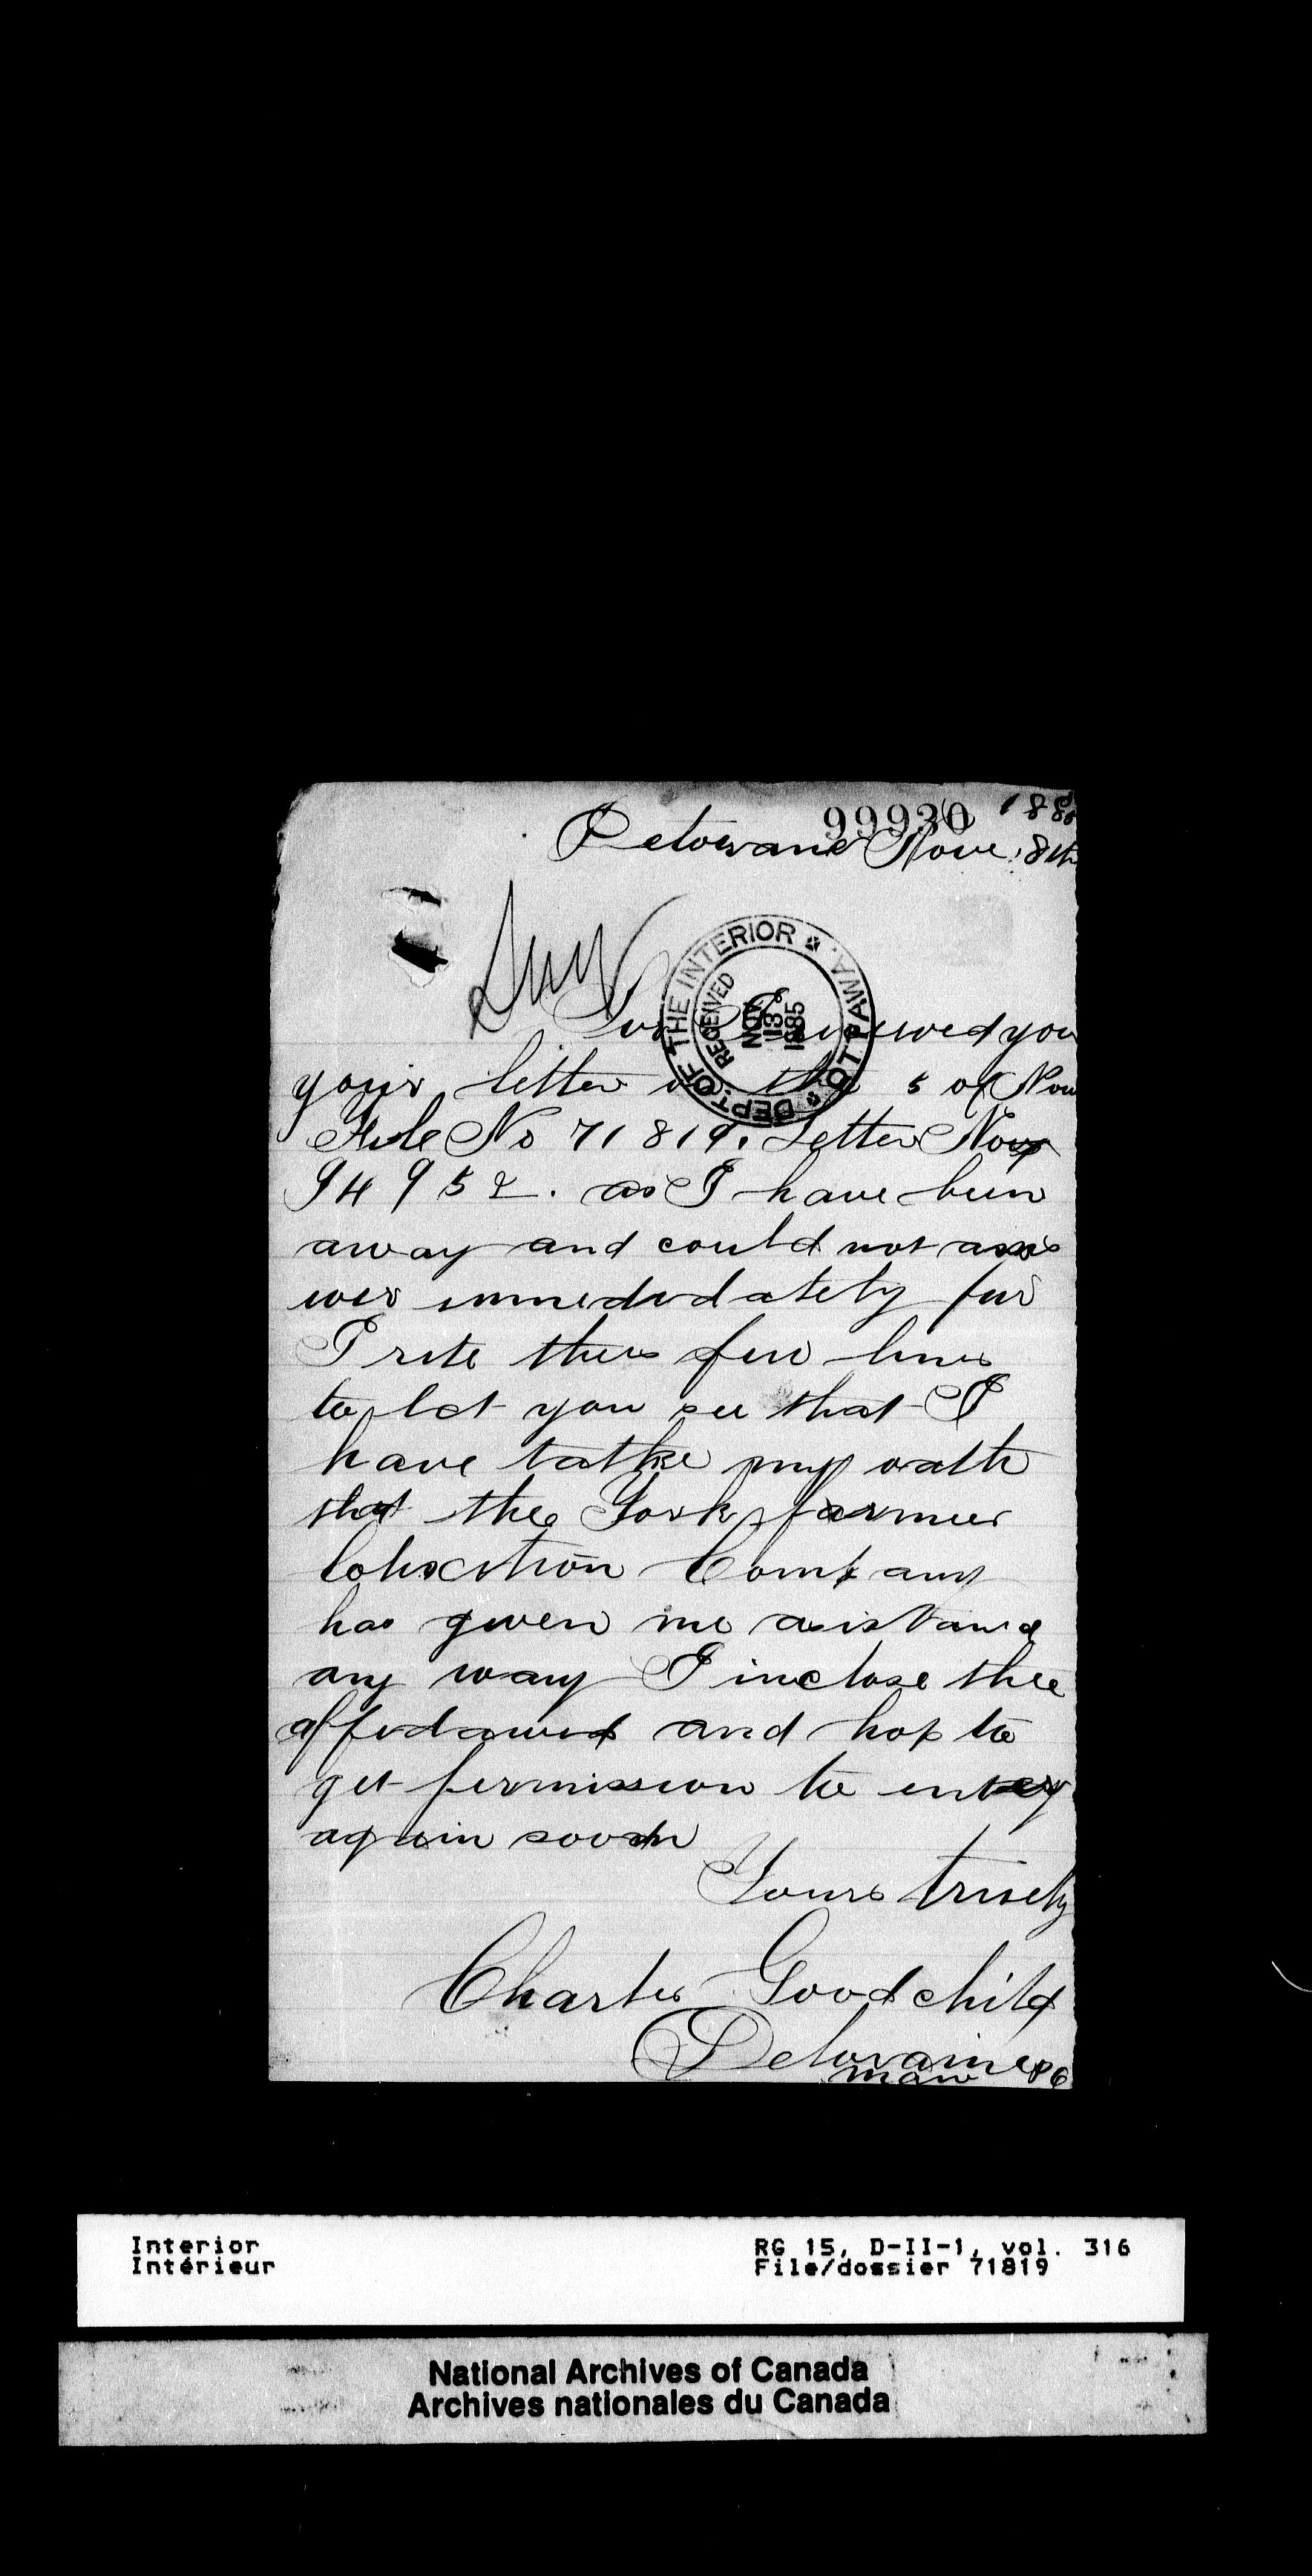 99930 188
Delorvane Nove 8th
DEPT. OF THE INTERIOR OTTAWA.
RECEIVED
NOV
13
1885
Sir I received you
your letter of the 5 of Nov
File No 71819. Letter No
94952. as I have been
away and could not ans
wer immededately for
I rite thes few lines
to let you see that I
have tatke my oath
that the York farmer
Colisation Company
has given me asistance
any way I inclose thee
affedawed and hop to
get permission to entery
again soon
Yours truely
Charles Goodchild
Delovaine PO
man
Interior
Intérieur
RG 15, D-II-1, vol. 316
File/dossier 71819
National Archives of Canada
Archives nationales du Canada